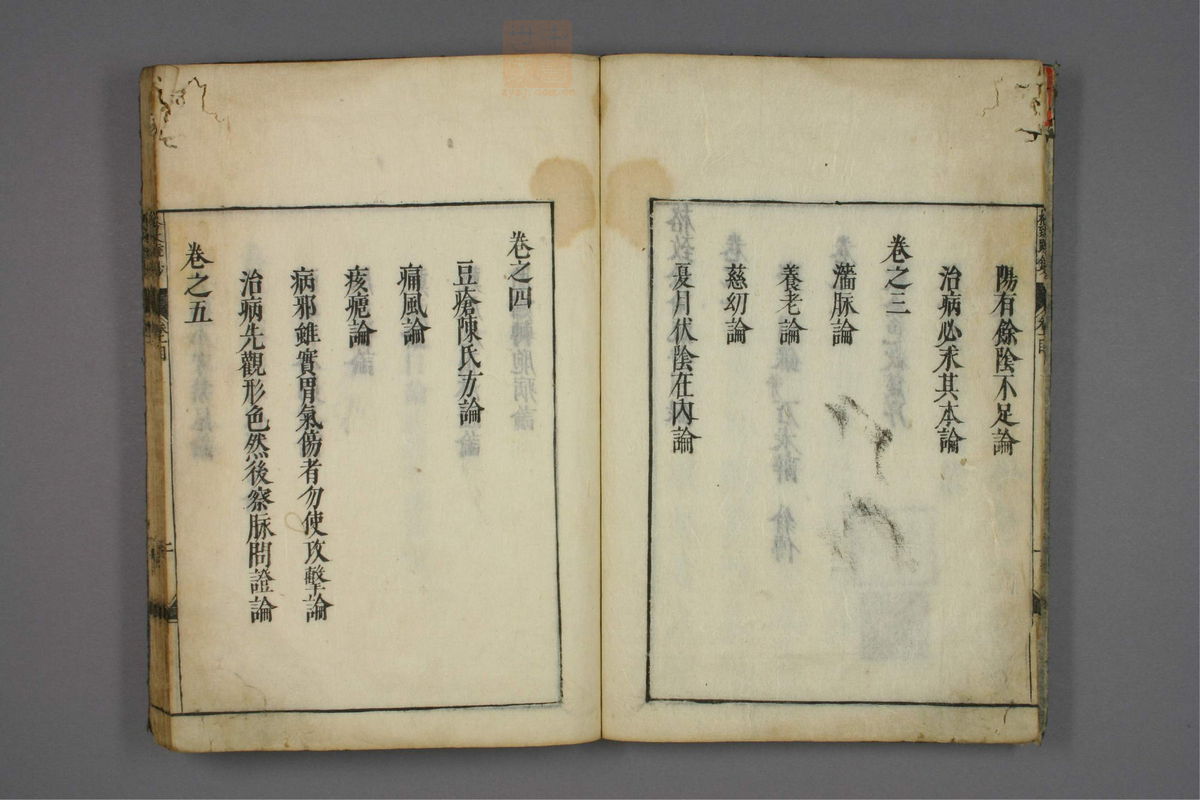 陽有餘陰不足論
治病必求其本論
卷之三
濇脉論
養老論
慈幼論
夏月伏陰在內論
卷之四
豆瘡陳氏方論
痛風論
痎瘧論
病邪雖實胃氣傷者勿使攻擊論
治病先觀形色然後察脉問證論
卷之五